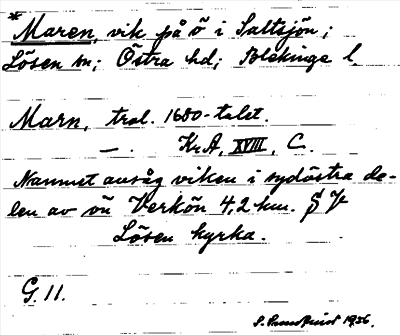 *Maren, vik på ö i Saltsjön;
Lösen sn; Östra hd; Blekinge l.
Marn, trol. 1680-talet.
—. Kr.A, XVIII, C.
Namnet avsåg viken i sydöstra de-
len av ön Verkön 4,2 km. S V
Lösen kyrka.
G. 11.
1936.